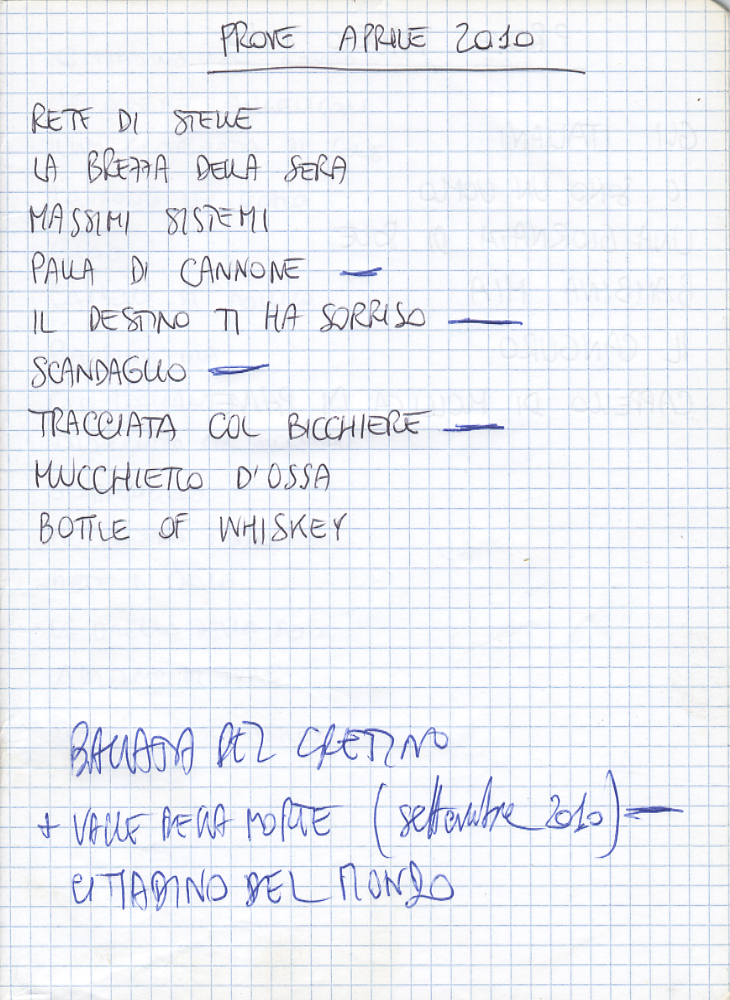 PROVE APRILE 2010
RETE DI STELLE
LA BREZZA DELLA SERA
MASSIMI SISTEMI
PALLA DI CANNONE —
IL DESTINO TI HA SORRISO —
SCANDAGLIO —
TRACCIATA COL BICCHIERE —
MUCCHIETTO D'OSSA
BOTTLE OF WHISKEY
BALLATA DEL CRETINO
+ VALLE DELLA MORTE (settembre 2010) —
CITTADINO DEL MONDO